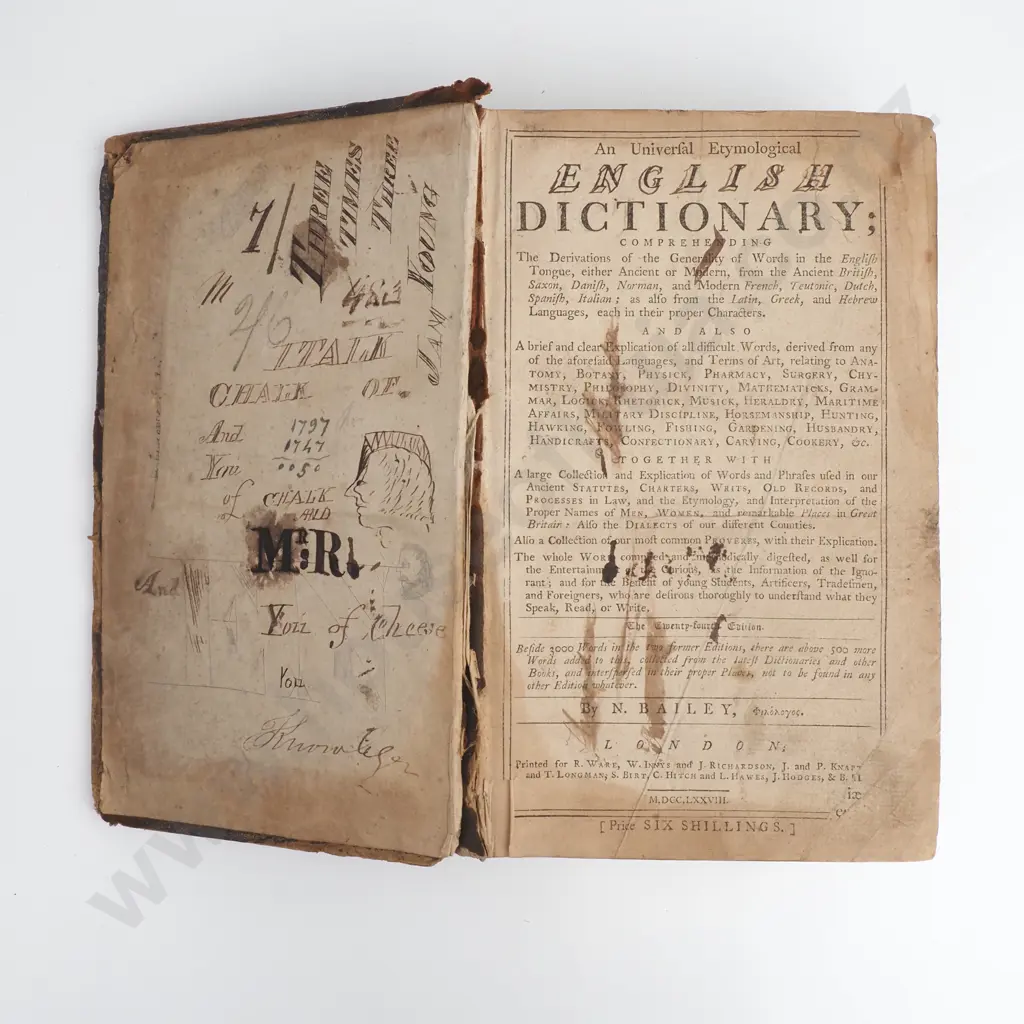 7/
THREE
TIMES
THREE
M
26
ITALK
CHALK OF
And 1797
You 1747
0050
of CHALK
AND
Mr:R
And
You of Cheese
You
An Univerſal Etymological
ENGLISH
DICTIONARY;
COMPREHENDING
The Derivations of the Generality of Words in the Engliſh
Tongue, either Ancient or Modern, from the Ancient Britiſh,
Saxon, Daniſh, Norman, and Modern French, Teutonic, Dutch,
Spaniſh, Italian; as alſo from the Latin, Greek, and Hebrew
Languages, each in their proper Characters.
AND ALSO
A brief and clear Explication of all difficult Words, derived from any
of the aforeſaid Languages, and Terms of Art, relating to ANA-
TOMY, BOTANY, PHYSICK, PHARMACY, SURGERY, CHY-
MISTRY, PHILOSOPHY, DIVINITY, MATHEMATICKS, GRAM-
MAR, LOGICK, RHETORICK, MUSICK, HERALDRY, MARITIME
AFFAIRS, MILITARY DISCIPLINE, HORSEMANSHIP, HUNTING,
HAWKING, FOWLING, FISHING, GARDENING, HUSBANDRY,
HANDICRAFTS, CONFECTIONARY, CARVING, COOKERY, &c.
TOGETHER WITH
A large Collection and Explication of Words and Phraſes uſed in our
Ancient STATUTES, CHARTERS, WRITS, OLD RECORDS, and
PROCESSES in Law, and the Etymology, and Interpretation of the
Proper Names of MEN, WOMEN, and remarkable Places in Great
Britain: Alſo the DIALECTS of our different Counties.
Alſo a Collection of our moſt common PROVERBS, with their Explication.
The whole WORK compiled and methodically digeſted, as well for
the Entertainment of the Curious, as the Information of the Igno-
rant; and for the Benefit of young Students, Artificers, Tradeſmen,
and Foreigners, who are deſirous thoroughly to underſtand what they
Speak, Read, or Write.
The Twenty-fourth Edition.
Beſide 3000 Words in the two former Editions, there are above 500 more
Words added to this, collected from the lateſt Dictionaries and other
Books, and interſperſed in their proper Places, not to be found in any
other Edition whatever.
By N. BAILEY, Φιλόλογος.
LONDON:
Printed for R. WARE, W. INNYS and J. RICHARDSON, J. and P. KNAP
and T. LONGMAN, S. BIRT, C. HITCH and L. HAWES, J. HODGES, & B.
M,DCC,LXXVIII.
[Price SIX SHILLINGS.]